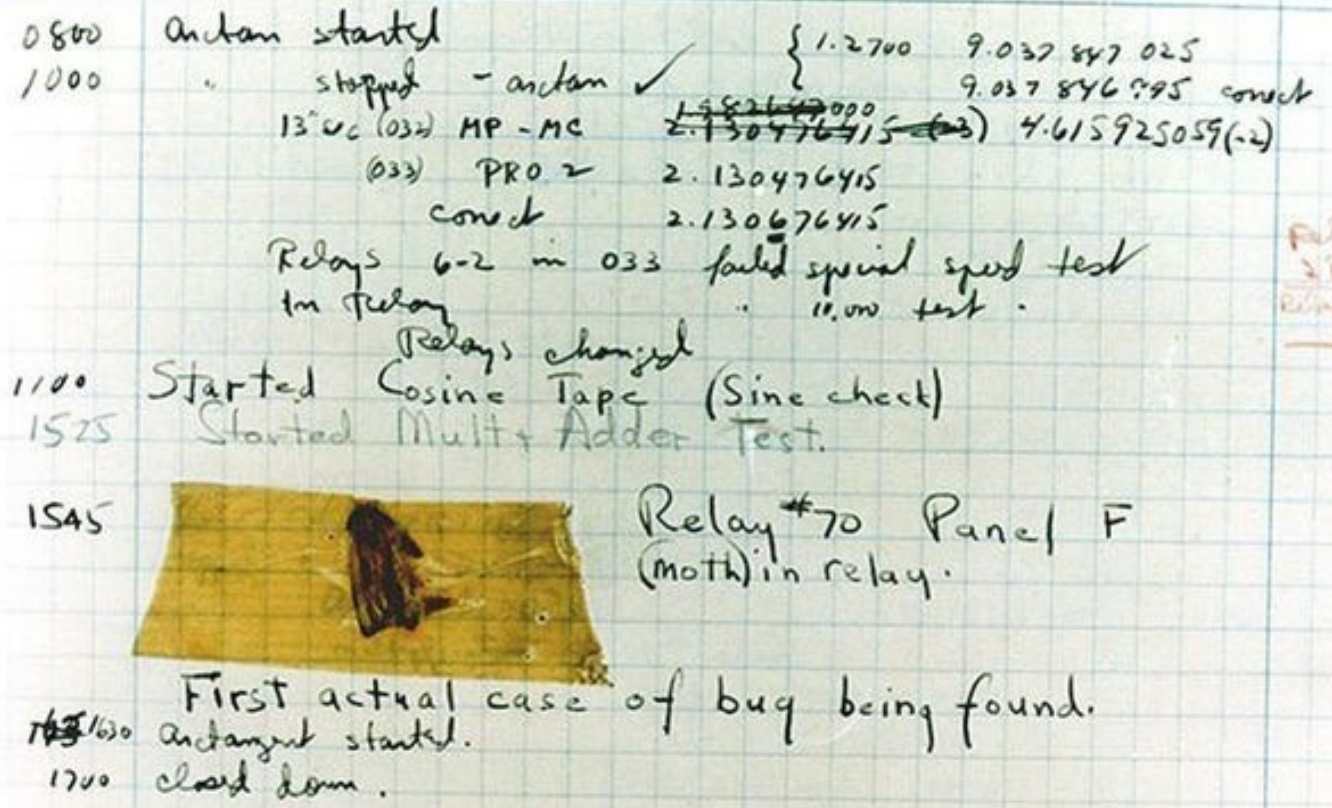 0800 arctan started { 1.2700 9.037 847 025
1000 " stopped - arctan ✓ 9.037 846 995 correct
13"uc (032) MP - MC 2.130476415 (-3) 4.615925059(-2)
(033) PRO 2 2.130476415
correct 2.130676415
Relays 6-2 in 033 failed special speed test
In Relay " 11,000 test.
Relays changed
1100 Started Cosine Tape (Sine check)
1525 Started Mult+Adder Test.
1545 Relay #70 Panel F
(moth) in relay.
First actual case of bug being found.
1630 arctangent started.
1700 closed down.